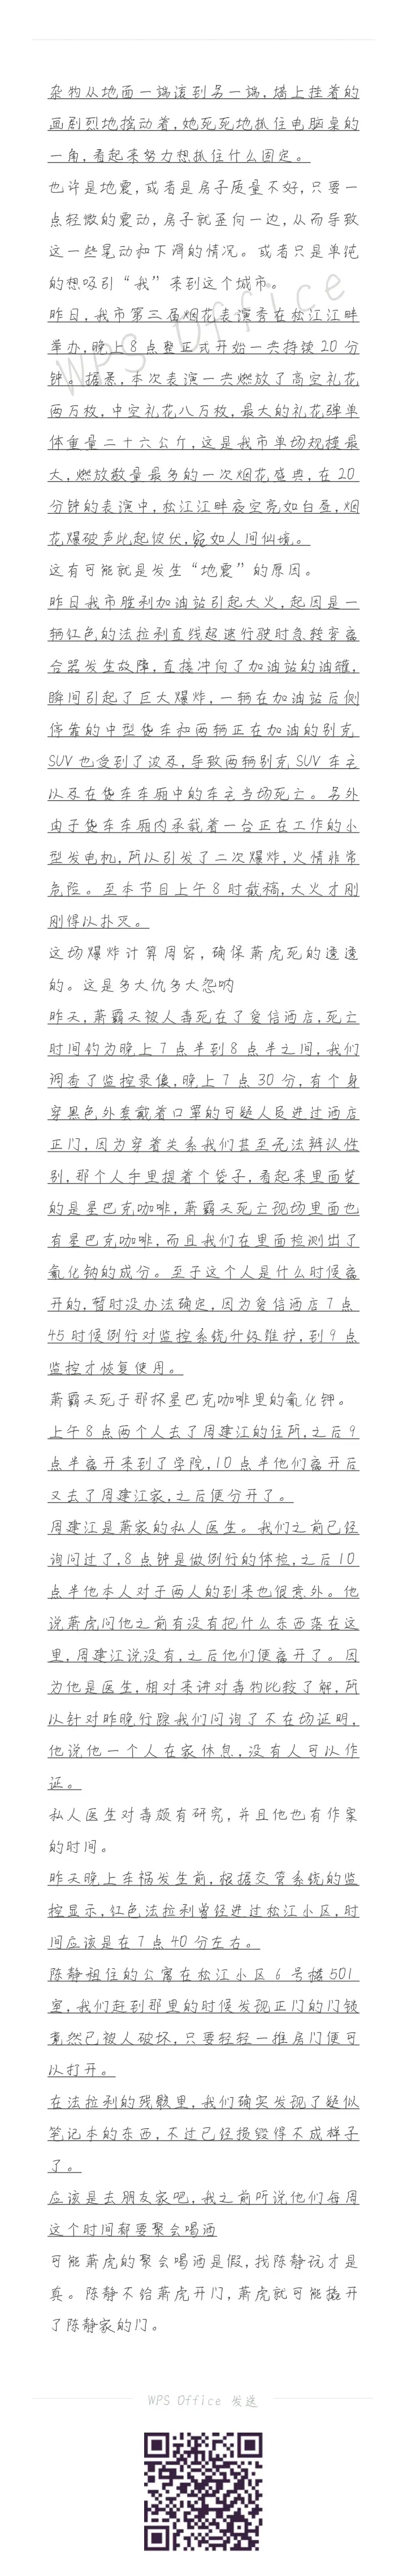 杂物从地面一端滚到另一端,墙上挂着的
画剧烈地摇动着,她死死地抓住电脑桌的
一角,看起来努力想抓住什么固定。
也许是地震,或者是房子质量不好,只要一
点轻微的震动,房子就歪向一边,从而导致
这一些晃动和下滑的情况。或者只是单纯
的想吸引“我”来到这个城市。
昨日,我市第三届烟花表演秀在松江江畔
举办,晚上8点整正式开始一共持续20分
钟。据悉,本次表演一共燃放了高空礼花
两万枚,中空礼花八万枚,最大的礼花弹单
体重量二十六公斤,这是我市单场规模最
大,燃放数量最多的一次烟花盛典,在20
分钟的表演中,松江江畔夜空亮如白昼,烟
花爆破声此起彼伏,宛如人间仙境。
这有可能就是发生“地震”的原因。
昨日我市胜利加油站引起大火,起因是一
辆红色的法拉利直线超速行驶时急转弯离
合器发生故障,直接冲向了加油站的油罐,
瞬间引起了巨大爆炸,一辆在加油站后侧
停靠的中型货车和两辆正在加油的别克
SUV也受到了波及,导致两辆别克SUV车主
以及在货车车厢中的车主当场死亡。另外
由于货车车厢内承载着一台正在工作的小
型发电机,所以引发了二次爆炸,火情非常
危险。至本节目上午8时截稿,大火才刚
刚得以扑灭。
这场爆炸计算周密,确保萧虎死的透透
的。这是多大仇多大怨呐
昨天,萧霸天被人毒死在了爱信酒店,死亡
时间约为晚上7点半到8点半之间,我们
调查了监控录像,晚上7点30分,有个身
穿黑色外套戴着口罩的可疑人员进过酒店
正门,因为穿着关系我们甚至无法辨认性
别,那个人手里提着个袋子,看起来里面装
的是星巴克咖啡,萧霸天死亡现场里面也
有星巴克咖啡,而且我们在里面检测出了
氰化钠的成分。至于这个人是什么时候离
开的,暂时没办法确定,因为爱信酒店7点
45时候例行对监控系统升级维护,到9点
监控才恢复使用。
萧霸天死于那杯星巴克咖啡里的氰化钾。
上午8点两个人去了周建江的住所,之后9
点半离开来到了学院,10点半他们离开后
又去了周建江家,之后便分开了。
周建江是萧家的私人医生。我们之前已经
询问过了,8点钟是做例行的体检,之后10
点半他本人对于两人的到来也很意外。他
说萧虎问他之前有没有把什么东西落在这
里,周建江说没有,之后他们便离开了。因
为他是医生,相对来讲对毒物比较了解,所
以针对昨晚行踪我们问询了不在场证明,
他说他一个人在家休息,没有人可以作
证。
私人医生对毒颇有研究,并且他也有作案
的时间。
昨天晚上车祸发生前,根据交管系统的监
控显示,红色法拉利曾经进过松江小区,时
间应该是在7点40分左右。
陈静租住的公寓在松江小区6号楼501
室,我们赶到那里的时候发现正门的门锁
竟然已被人破坏,只要轻轻一推房门便可
以打开。
在法拉利的残骸里,我们确实发现了疑似
笔记本的东西,不过已经损毁得不成样子
了。
应该是去朋友家吧,我之前听说他们每周
这个时间都要聚会喝酒
可能萧虎的聚会喝酒是假,找陈静玩才是
真。陈静不给萧虎开门,萧虎就可能撬开
了陈静家的门。
WPS Office
WPS Office 发送